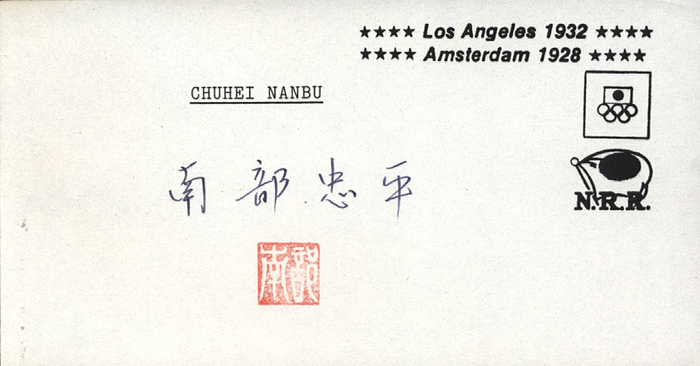 ★★★★ Los Angeles 1932 ★★★★
★★★★ Amsterdam 1928 ★★★★
CHUHEI NANBU
N.R.R.
南部忠平
南部